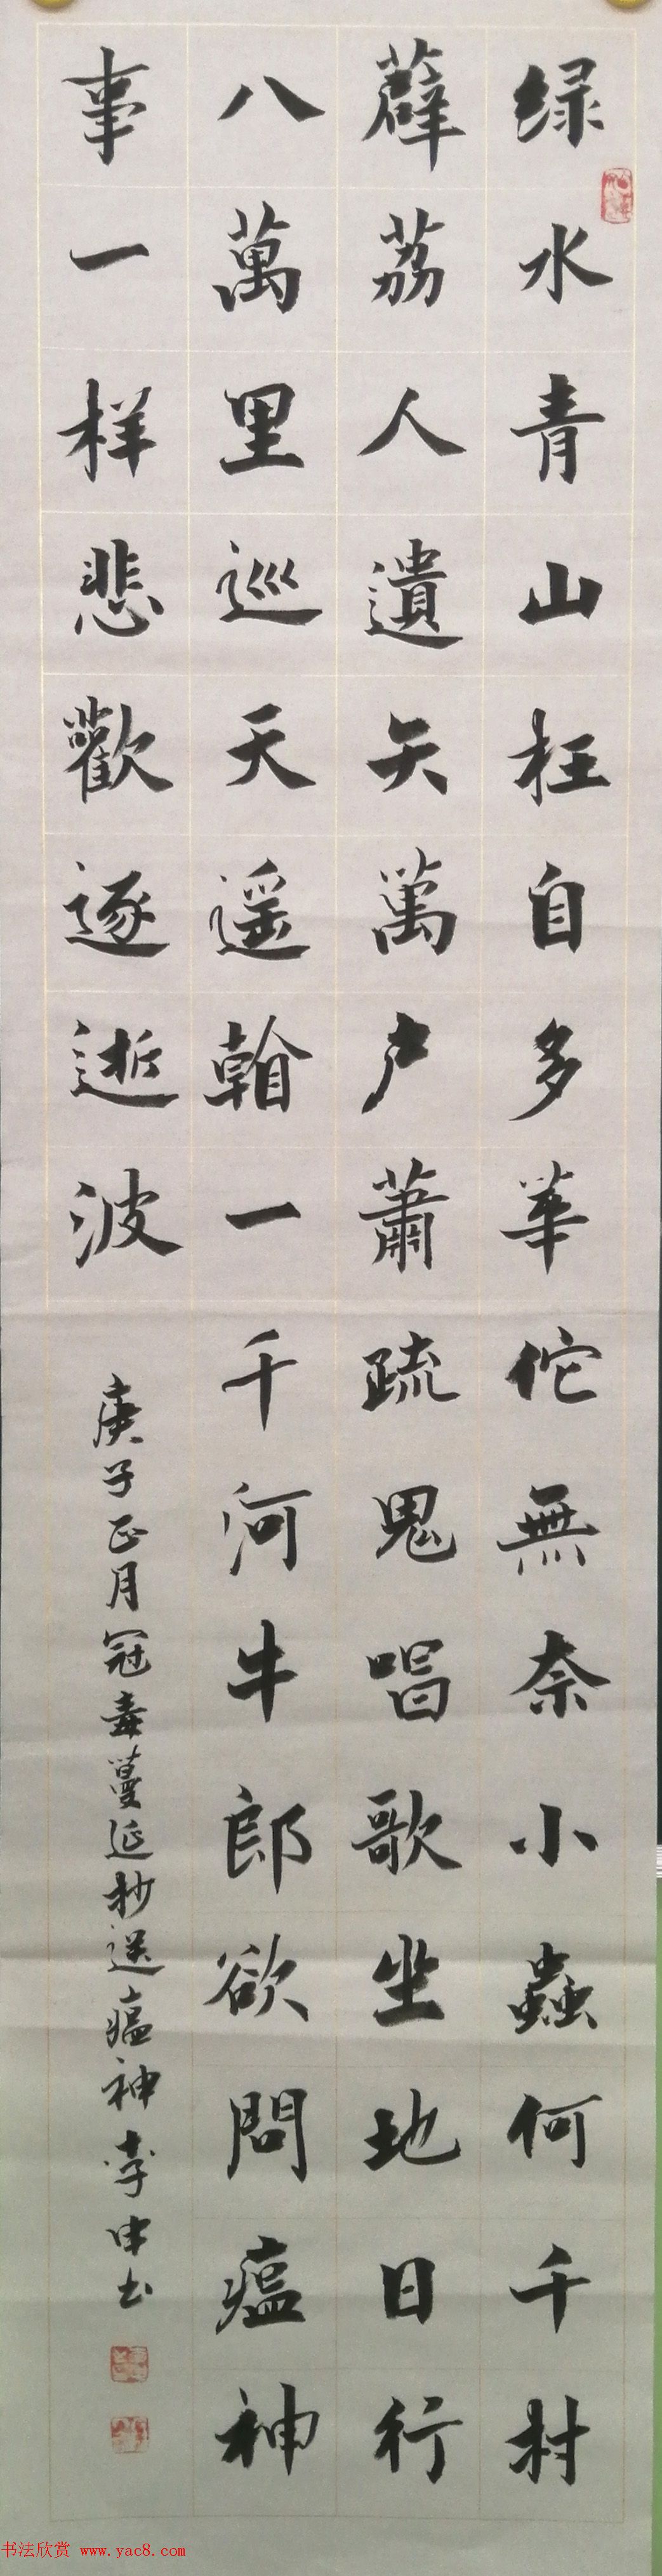 绿水青山枉自多華佗無奈小蟲何千村
薜荔人遺矢萬户蕭疏鬼唱歌坐地日行
八萬里巡天遥翰一千河牛郎欲問瘟神
事一样悲歡逐逝波
庚子正月冠毒蔓延抄送瘟神李申书
书法欣赏 www.yac8.com